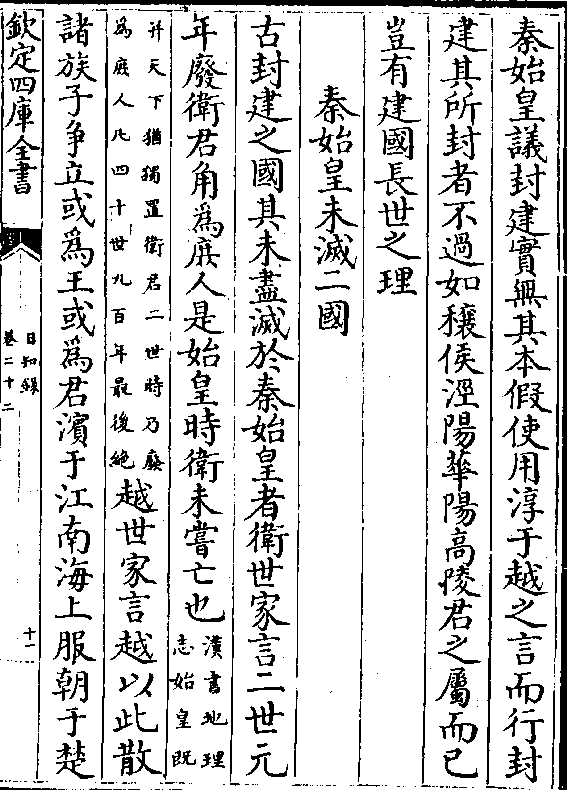 秦始皇議封建實無其本假使用淳于越之言而行封
建其所封者不過如穰侯涇陽華陽高陵君之屬而已
豈有建國長世之理
秦始皇未滅二國
古封建之國其未盡滅於秦始皇者衛世家言二世元
年廢衛君角為庶人是始皇時衛未嘗亡也漢書地理志始皇既
并天下猶獨置衛君二世時乃廢為庶人凡四十世九百年最後絶越世家言越以此散
諸族子争立或為王或為君濱于江南海上服朝于楚
欽定四庫全書
日知録
卷二十二
十一